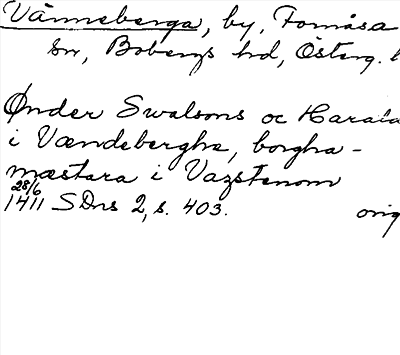 Vänneberga, by, Fornåsa
sn, Bobergs hd, Österg. l
Ønder Swalsons oc Harala
i Vændeberghæ, borgha-
mæstara i Vazstenom
28/6
1411 SDns 2, s. 403. orig